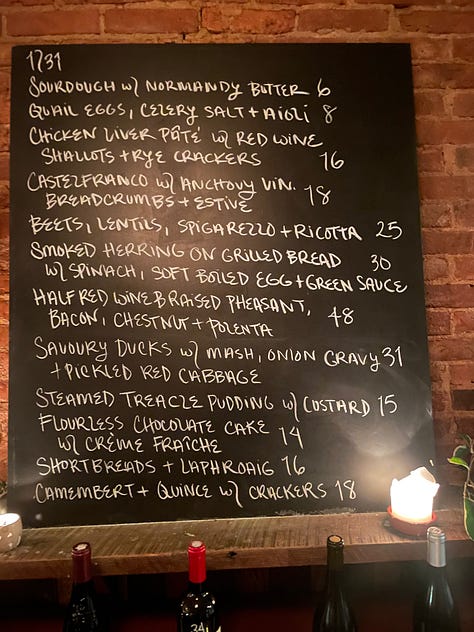 1731
SOURDOUGH W/ NORMANDY BUTTER 6
QUAIL EGGS, CELERY SALT + AIOLI 8
CHICKEN LIVER PÂTÉ W/ RED WINE
SHALLOTS + RYE CRACKERS 16
CASTELFRANCO W/ ANCHOVY VIN.
BREADCRUMBS + ESTIVE 18
BEETS, LENTILS, SPIGARELLO + RICOTTA 25
SMOKED HERRING ON GRILLED BREAD 30
W/ SPINACH, SOFT BOILED EGG + GREEN SAUCE
HALF RED WINE BRAISED PHEASANT,
BACON, CHESTNUT + POLENTA 48
SAVOURY DUCKS W/ MASH, ONION GRAVY 31
+ PICKLED RED CABBAGE
STEAMED TREACLE PUDDING W/ CUSTARD 15
FLOURLESS CHOCOLATE CAKE
W/ CRÉME FRAÎCHE 14
SHORTBREADS + LAPHROAIG 16
CAMEMBERT + QUINCE W/ CRACKERS 18